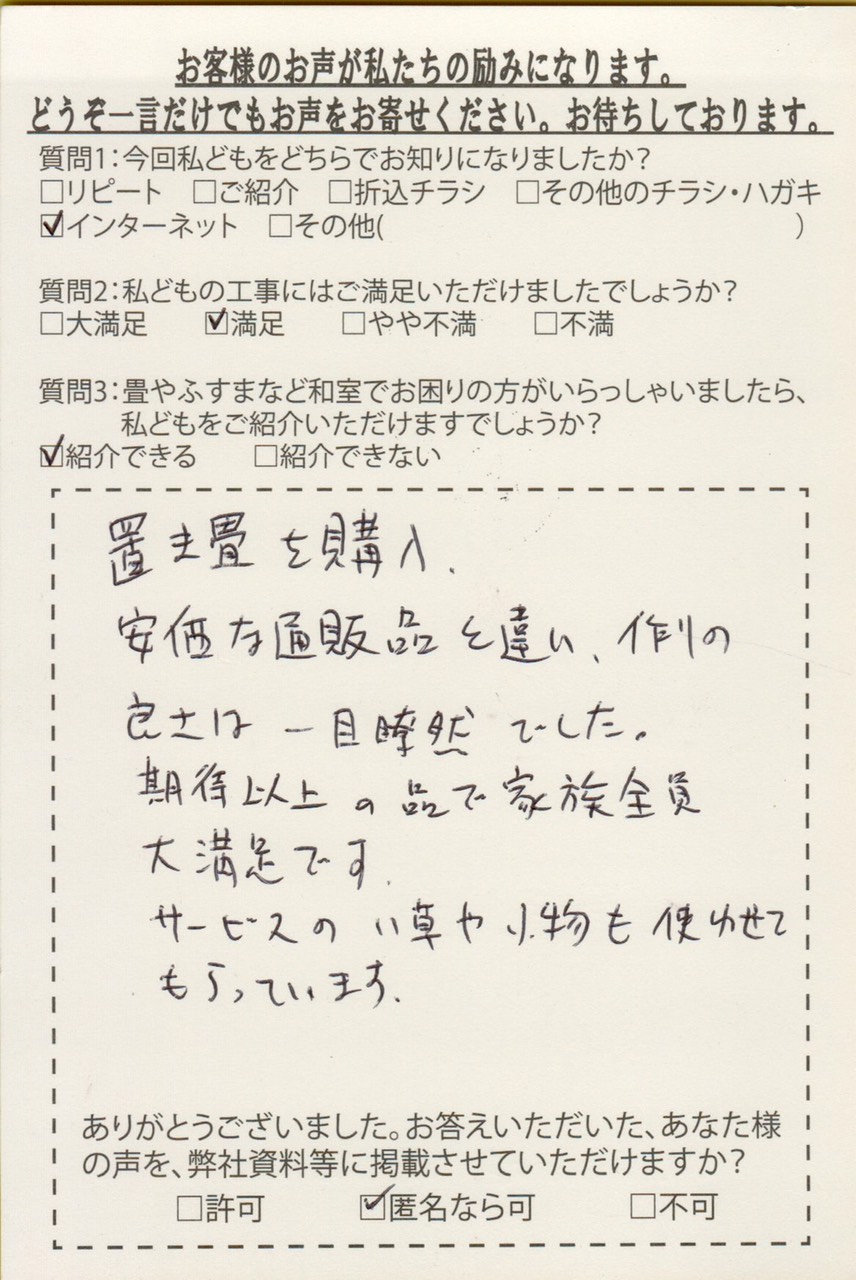 お客様のお声が私たちの励みになります。
どうぞ一言だけでもお声をお寄せください。お待ちしております。
質問1:今回私どもをどちらでお知りになりましたか?
□リピート □ご紹介 □折込チラシ □その他のチラシ・ハガキ
☑インターネット □その他( )
質問2:私どもの工事にはご満足いただけましたでしょうか?
□大満足 ☑満足 □やや不満 □不満
質問3:畳やふすまなど和室でお困りの方がいらっしゃいましたら、
私どもをご紹介いただけますでしょうか?
☑紹介できる □紹介できない
置き畳を購入.
安価な通販品と違い、作りの
良さは一目瞭然でした。
期待以上の品で家族全員
大満足です.
サービスのい草や小物も使わせて
もらっています.
ありがとうございました。お答えいただいた、あなた様
の声を、弊社資料等に掲載させていただけますか?
□許可 ☑匿名なら可 □不可